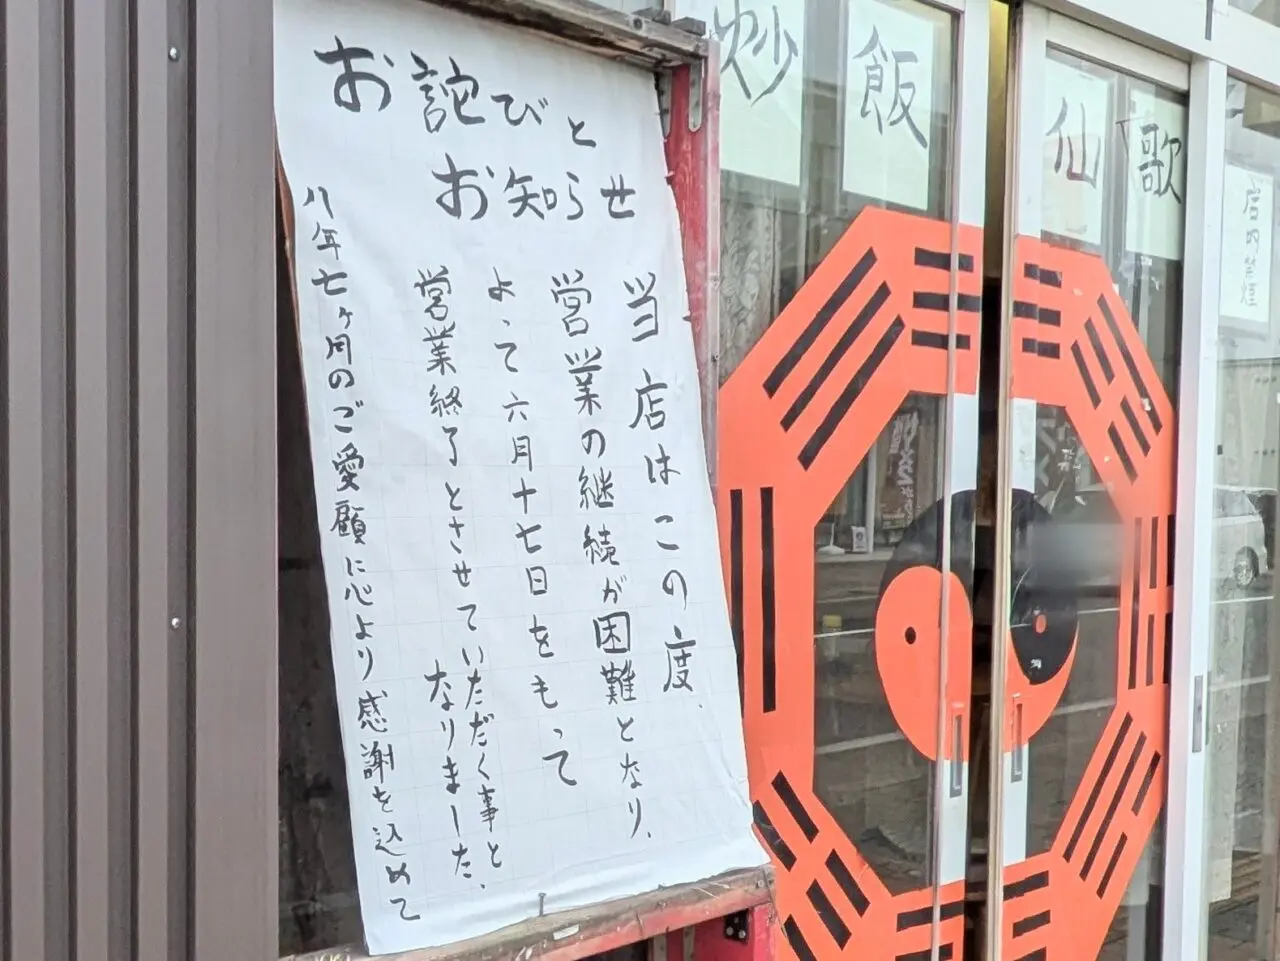 お詫びと
お知らせ
当店はこの度、
営業の継続が困難となり、
よって六月十七日をもって
営業終了とさせていただく事と
なりました、
八年七ヶ月のご愛顧に心より感謝を込めて
炒飯
仙歌
店内禁煙